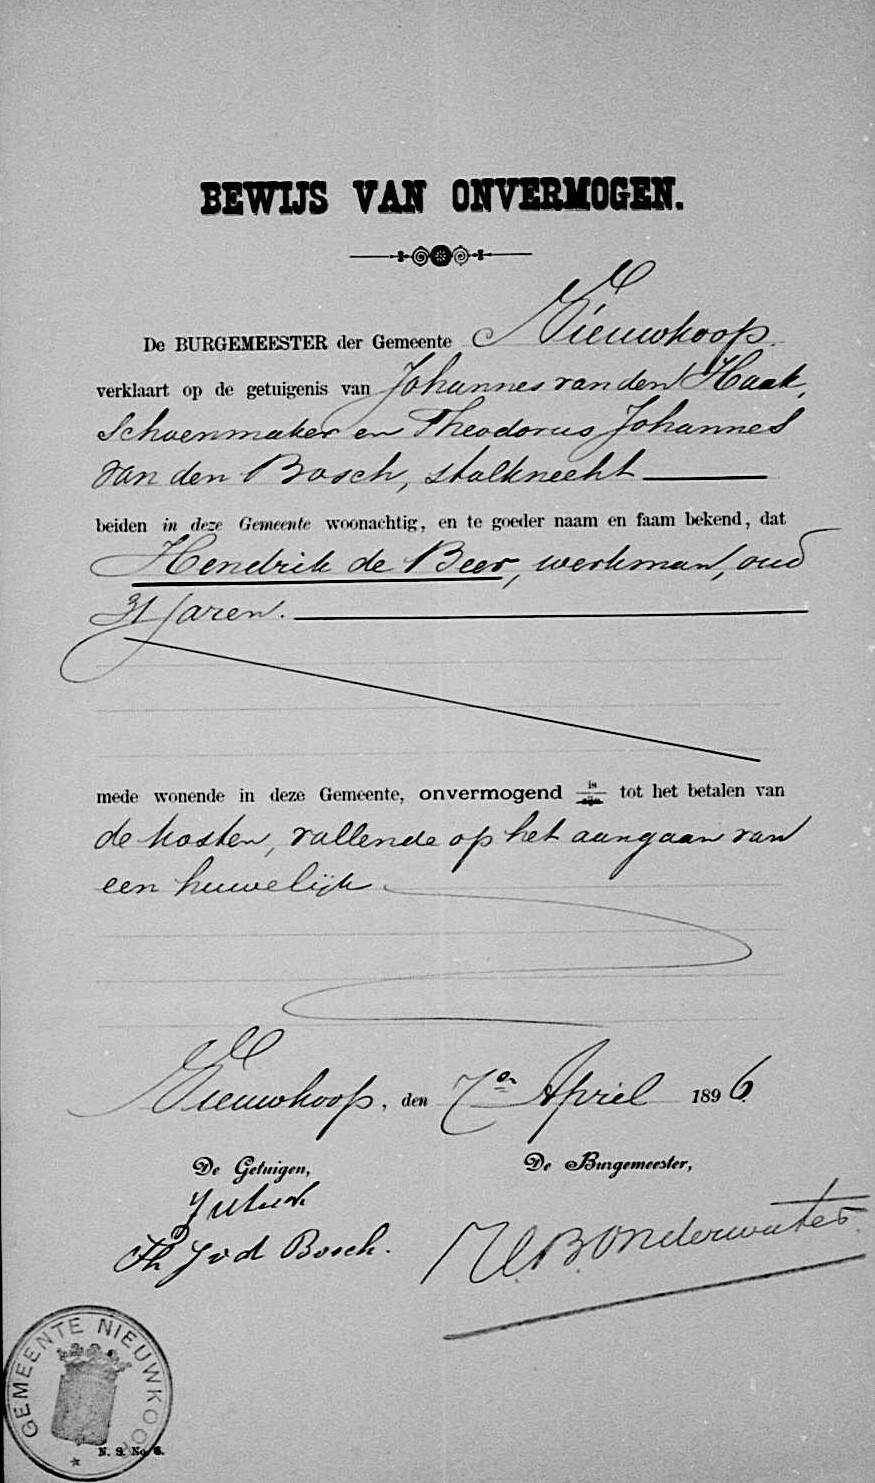 BEWIJS VAN ONVERMOGEN.
De BURGEMEESTER der Gemeente Nieuwkoop
verklaart op de getuigenis van Johannes van den Haak,
Schoenmaker en Theodorus Johannes
van den Bosch, stalknecht
beiden in deze Gemeente woonachtig, en te goeder naam en faam bekend, dat
Hendrik de Beer, werkman, oud
31 jaren.
mede wonende in deze Gemeente, onvermogend is/zijn tot het betalen van
de kosten, vallende op het aangaan van
een huwelijk.
Nieuwkoop, den 7en April 1896.
De Getuigen, De Burgemeester,
Th J v d Bosch. Onderwater
GEMEENTE NIEUWKOOP
N. S. No. 6.